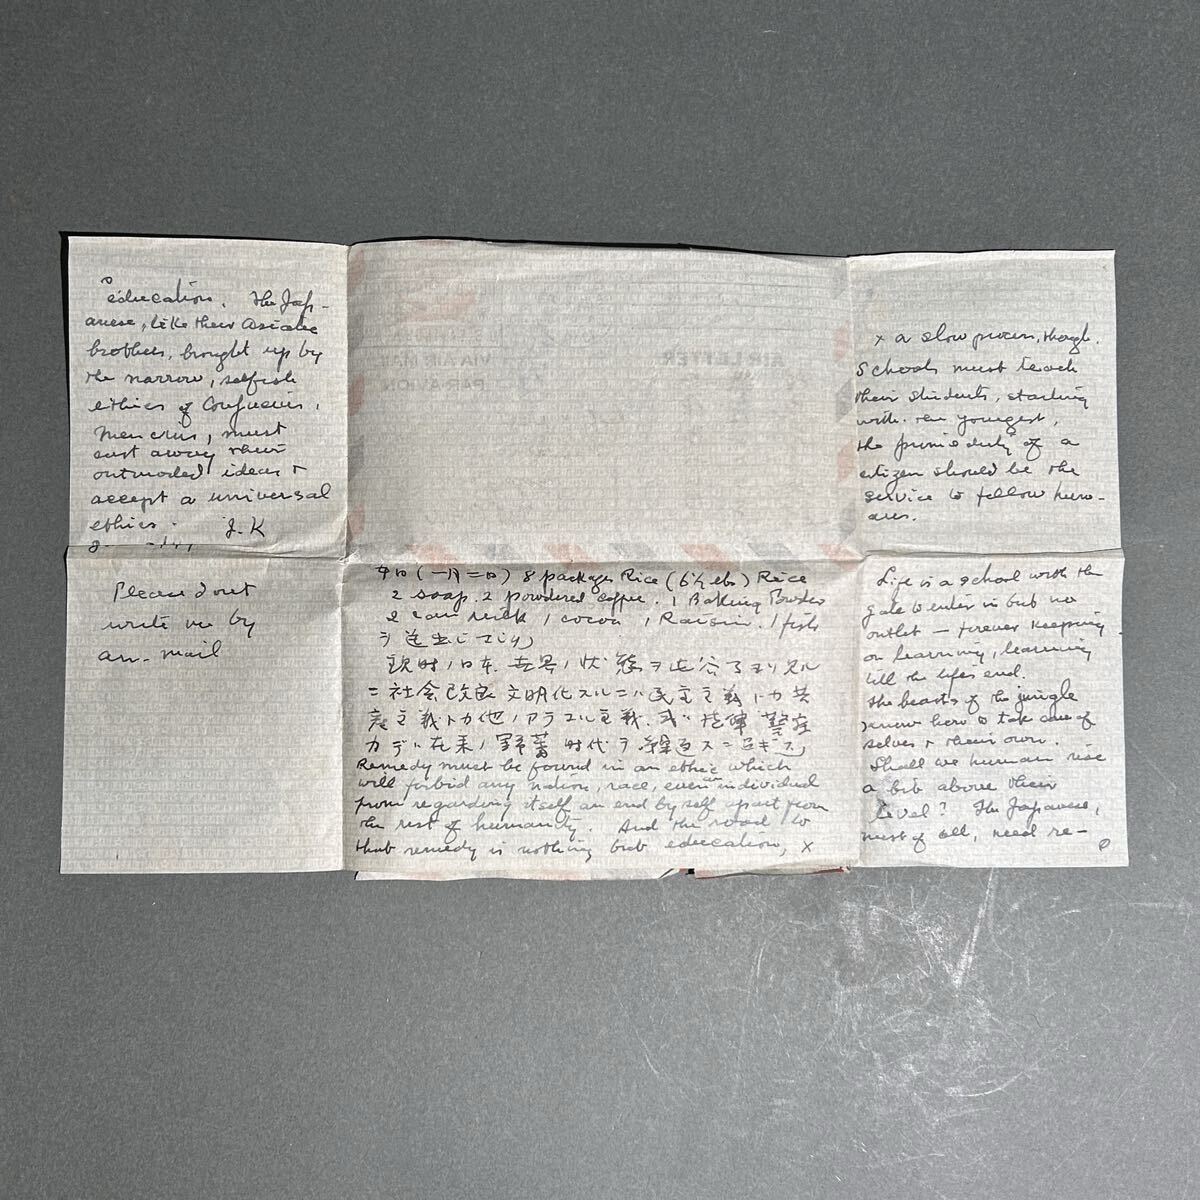 education. The Jap-
anese, like their Asiatic
brothers, brought up by
the narrow, selfish
ethics of Confucius,
Mencius, must
cast away their
outmoded ideas +
accept a universal
ethics. J. K
Please dont
write me by
air-mail
(一月二日) 8 packages Rice (6½ lbs) Rice
2 soap. 2 powdered coffee. 1 Baking Powder
2 can milk, 1 cocoa, 1 Raisin. 1 fish
ヲ送出シてシリ
現時ノ日本、世界ノ状態ヲ
ニ社会改良文明化スルニハ民主主義トカ共
産主義トカ他ノアラユル主義、或ハ 警
在来ノ野蕃時代ヲ繰返スニ過ギズ
Remedy must be found in an ethic which
will forbid any nation, race, even an individual
from regarding itself an end by self apart from
the rest of humanity. And the road to
that remedy is nothing but education, x
x a slow process, though.
Schools must teach
their students, starting
with the youngest,
the prime duty of a
citizen should be the
service to fellow hum-
ans.
Life is a school with the
gate to enter in but no
outlet — forever keeping
on learning, learning
till the life's end.
The beasts of the jungle
know how to take care of
selves + their own.
Shall we human rise
a bit above their
level? The Japanese,
most of all, need re-
VIA AIR MAIL
PAR AVION
AIR LETTER